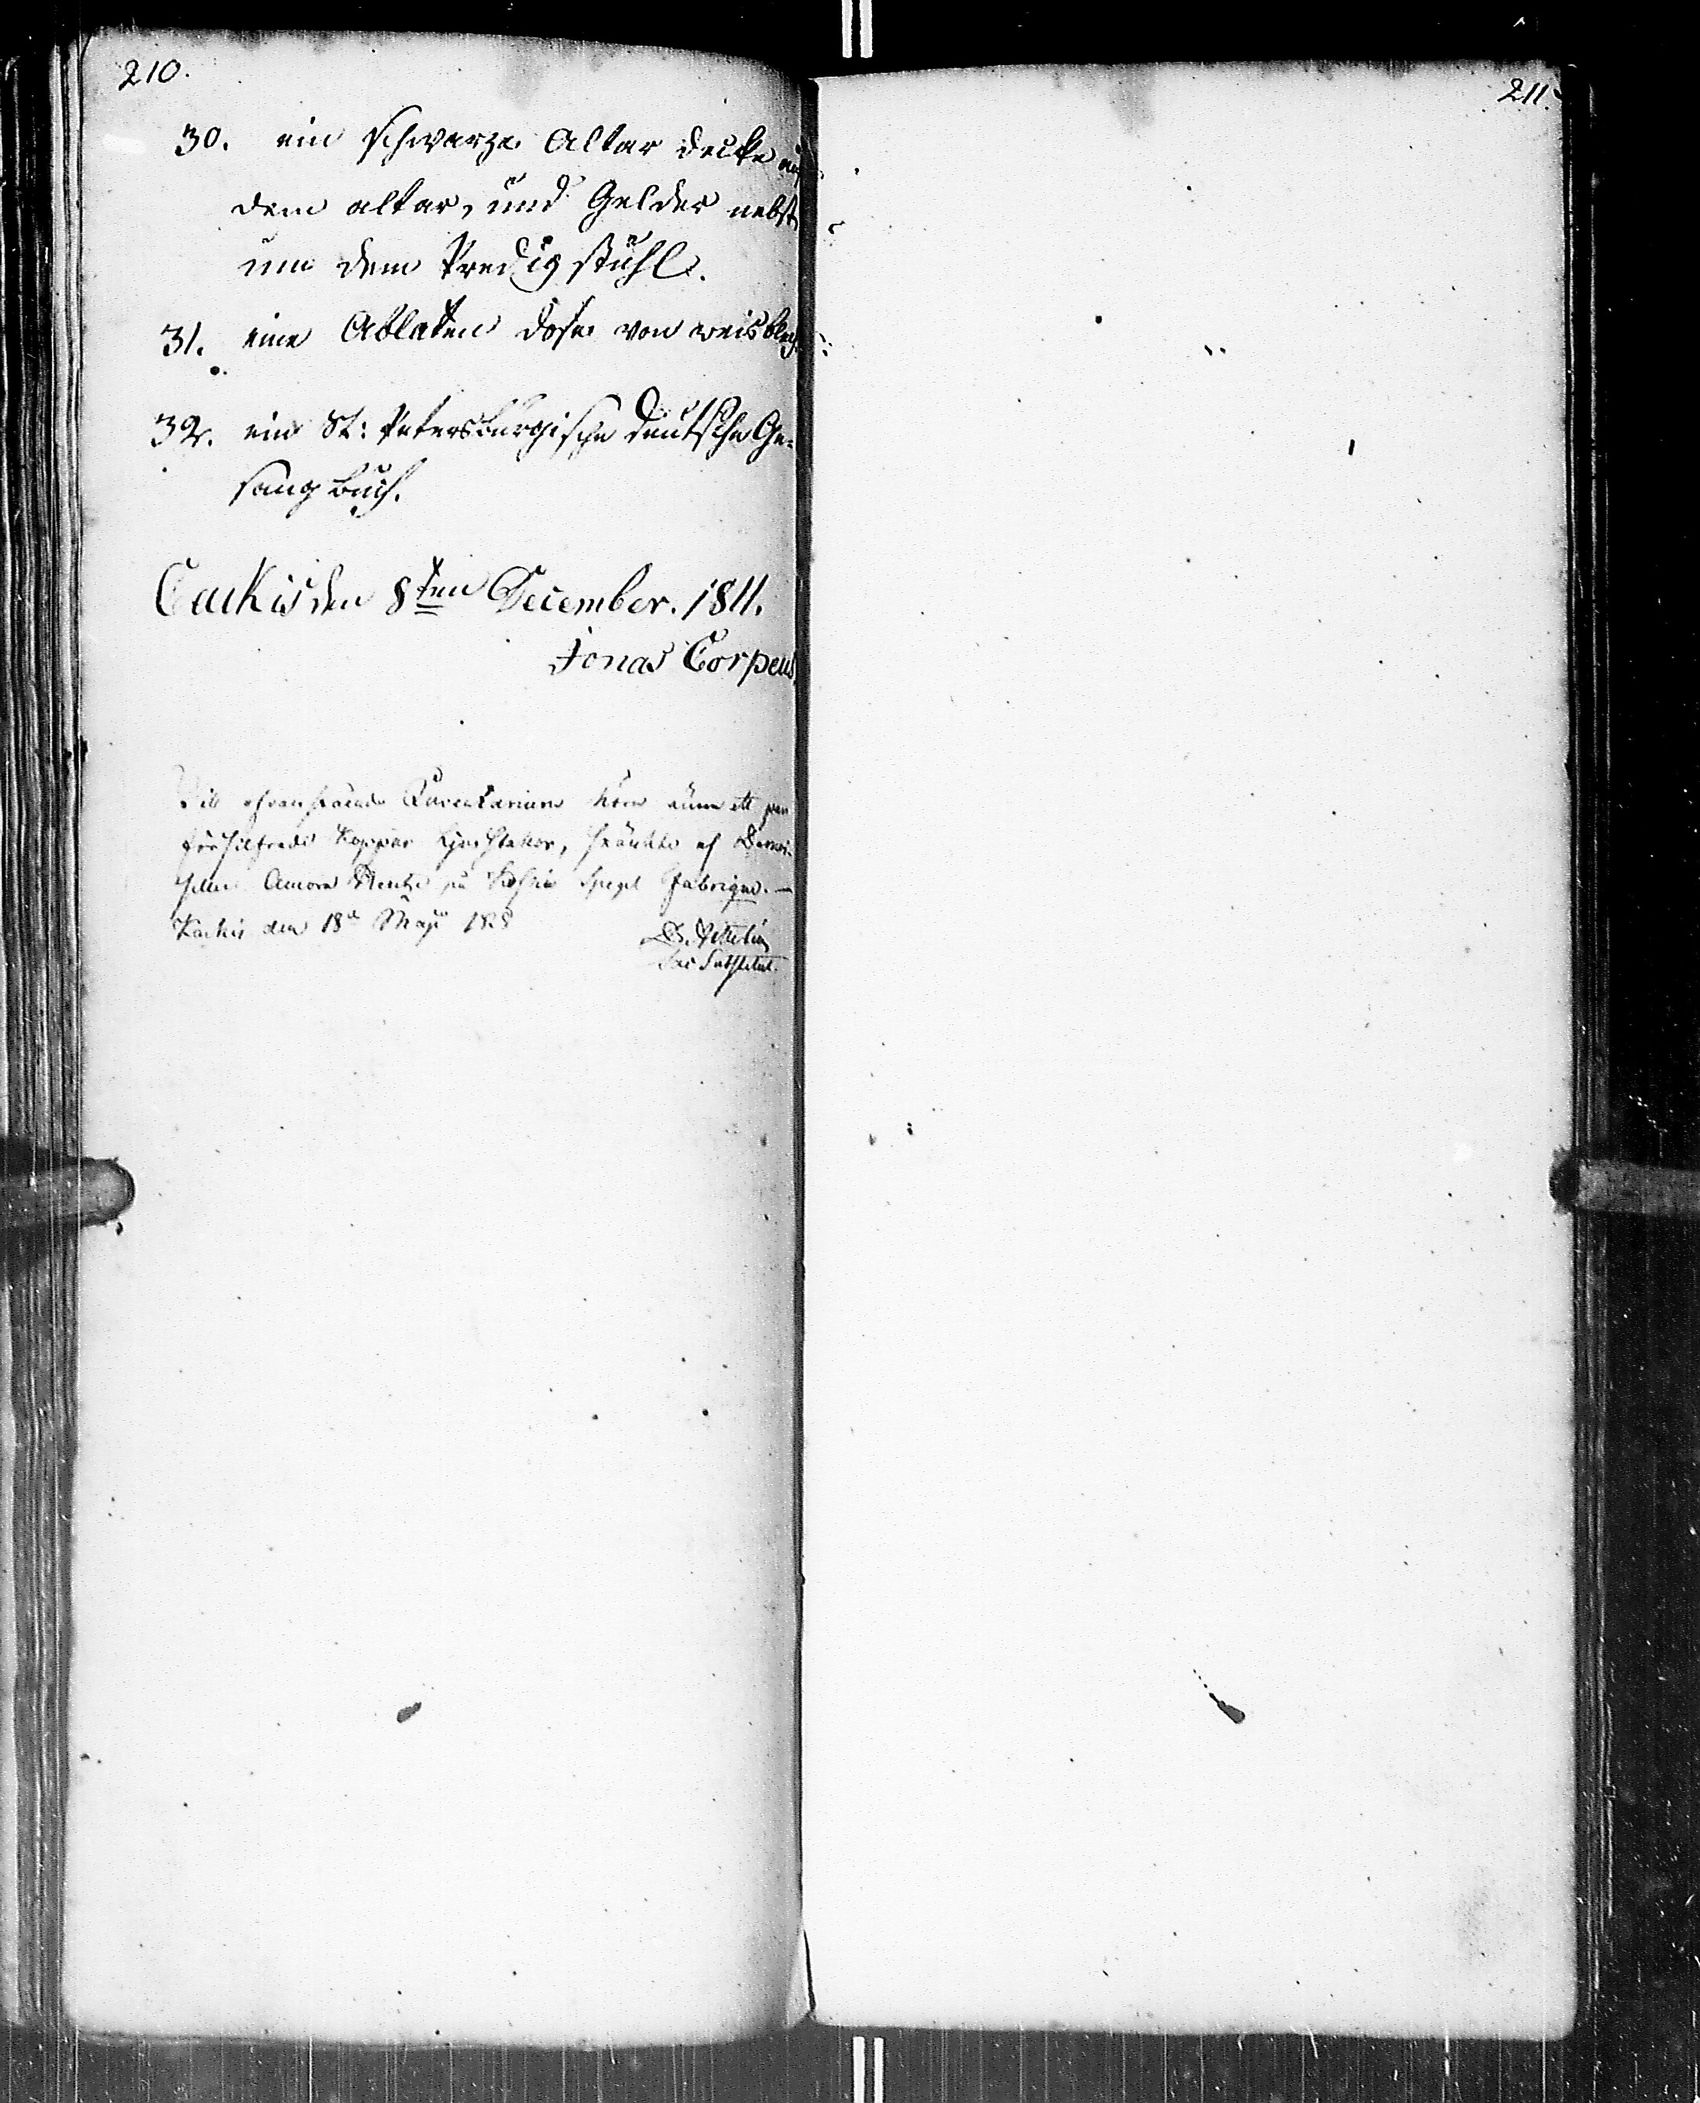 210.
30. ein schwarze Altar decke auf
dem altar, und Gelder nebst
um dem Predig stuhl.
31. eine Ablaten dose von weisblech
32. ein St: Petersburgische deutsche Ge-
sang buch.
Cackis den 8ten December. 1811.
Jonas Corpeus
Till ofvanstående Inventarium kom ännu ett par
försilfrade Koppar Ljusstakar, skänkte af Demoi-
selle på Spegel Fabriquen.
Kackis den 18de Maji
Substitut.
211.